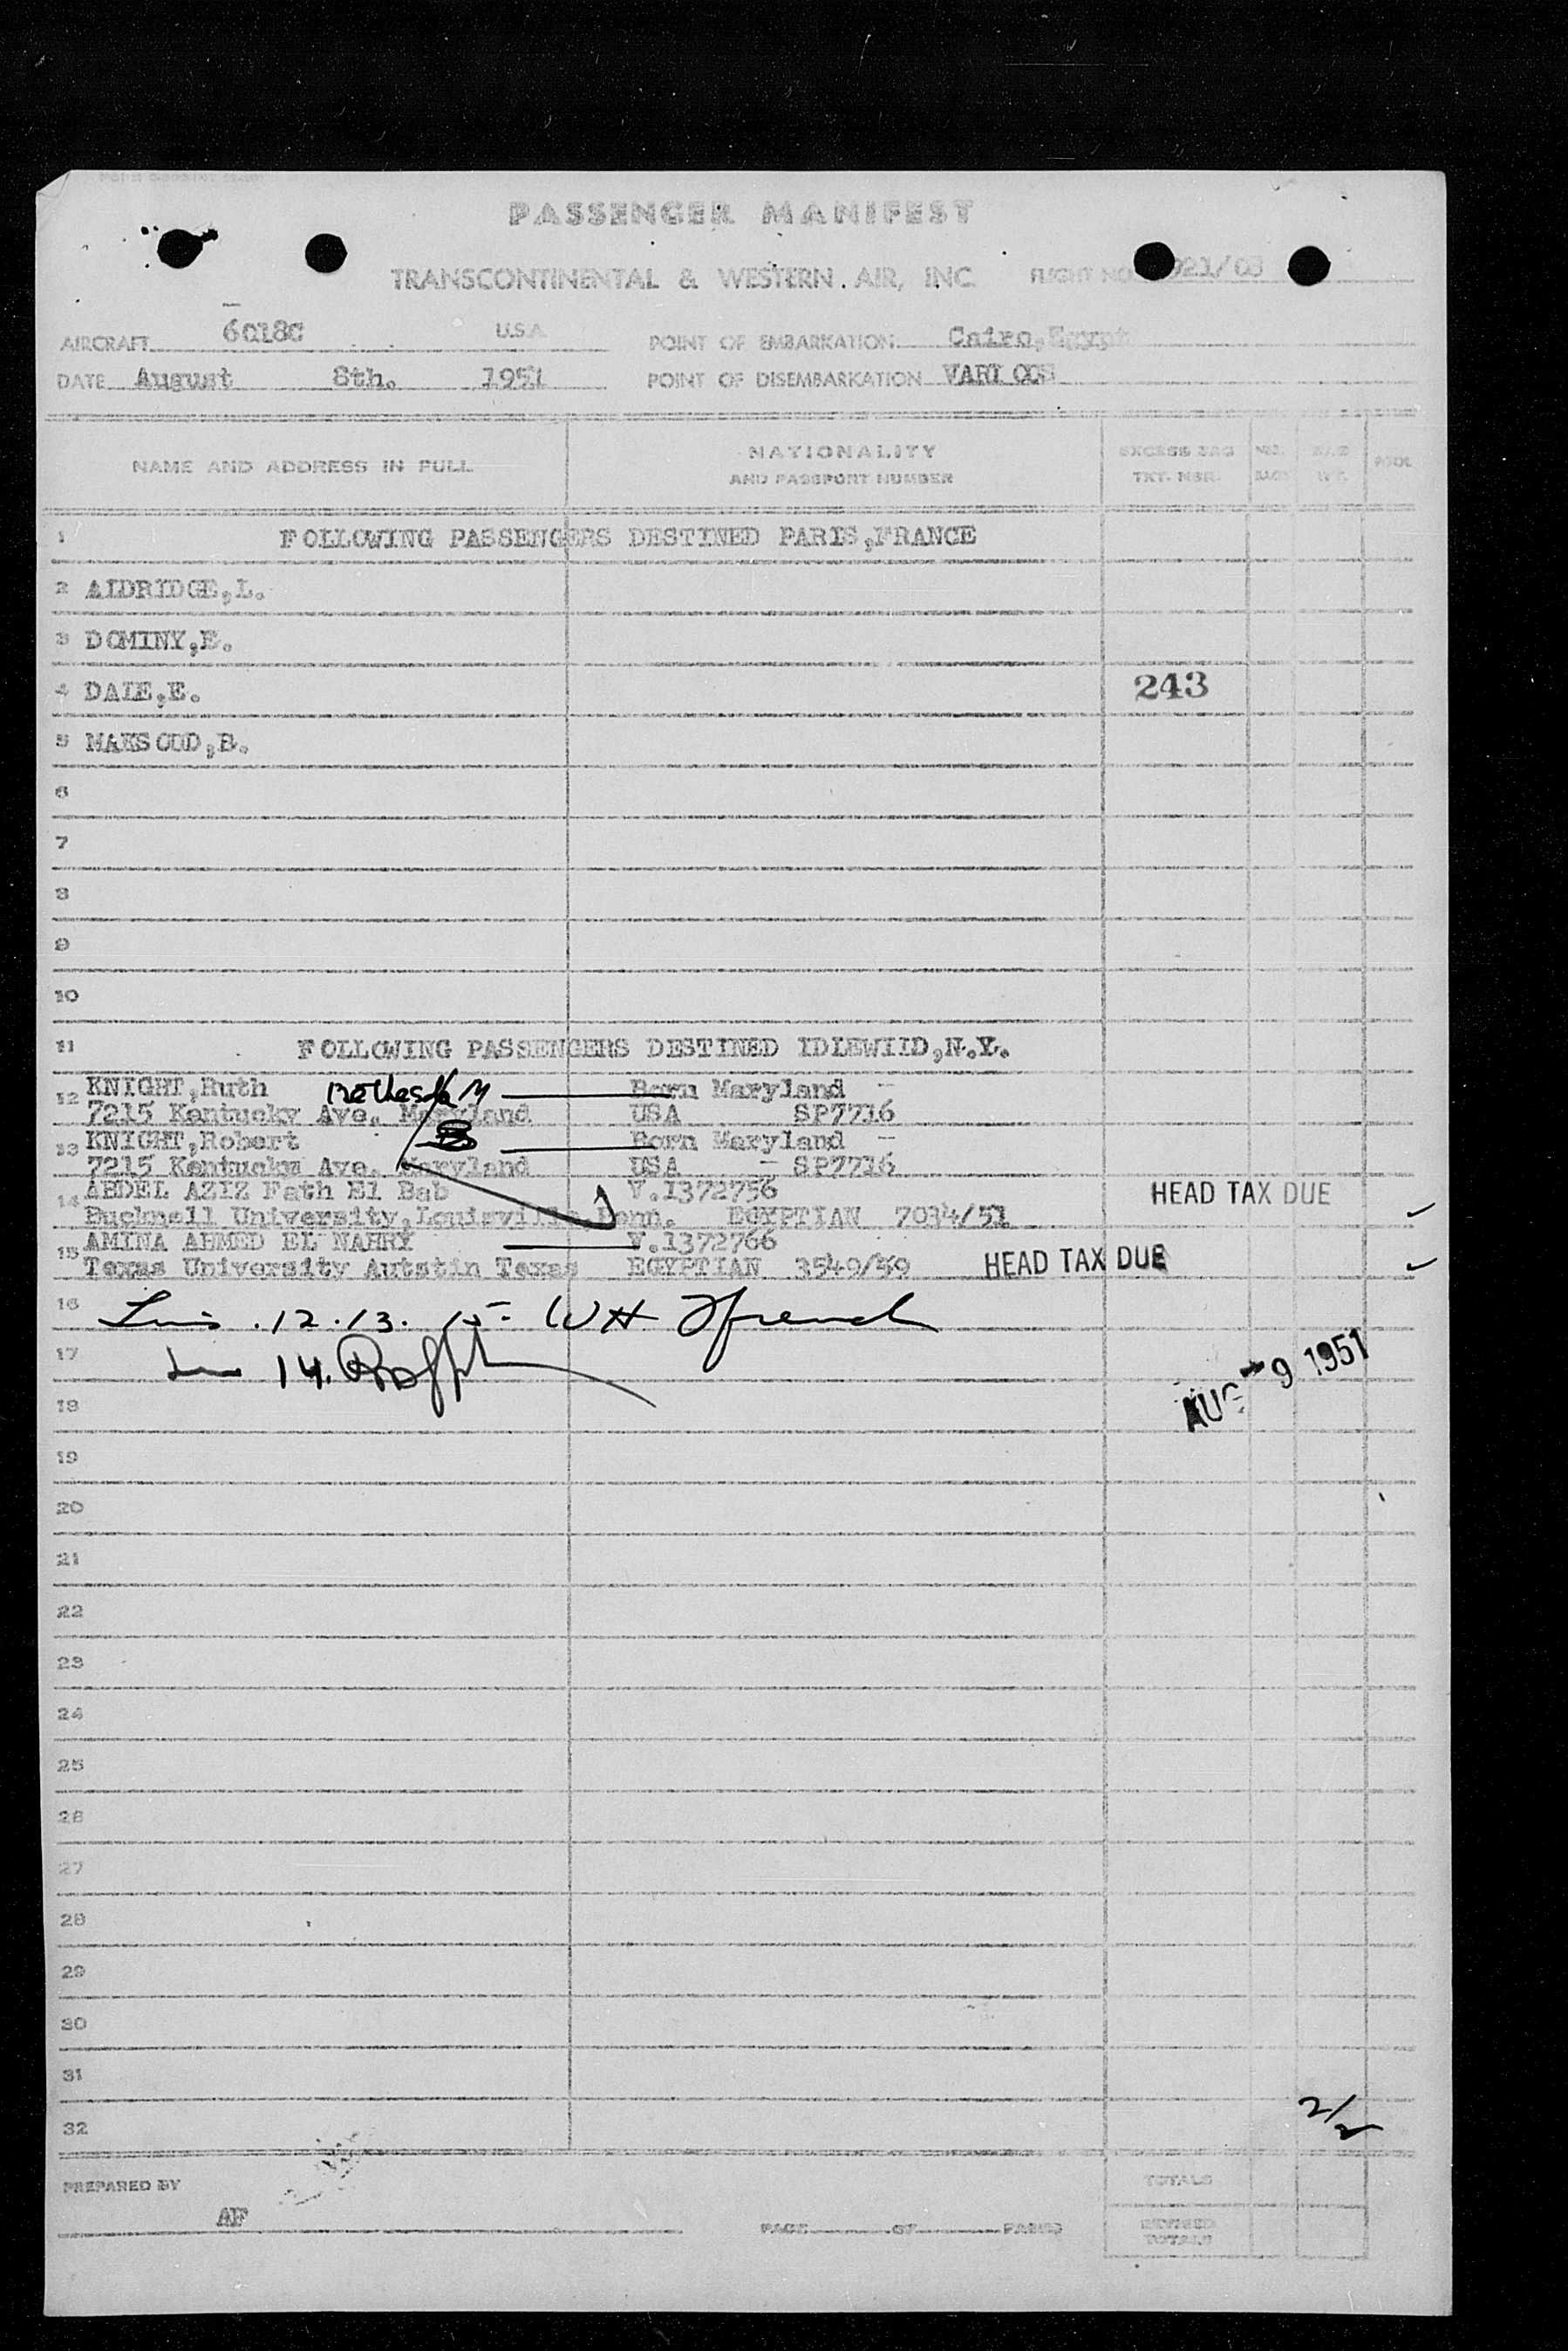 PASSENGER MANIFEST
TRANSCONTINENTAL & WESTERN AIR, INC. FLIGHT NO. 921/03
AIRCRAFT 6018C USA POINT OF EMBARKATION Cairo, Egypt
DATE August 8th. 1951 POINT OF DISEMBARKATION VARIOUS
NAME AND ADDRESS IN FULL NATIONALITY AND PASSPORT NUMBER EXCESS BAG TKT. NBR. NBR. BAGS BAG WT. POOL
1 FOLLOWING PASSENGERS DESTINED PARIS,FRANCE
2 ALDRIDGE,L.
3 DOMINY,E.
4 DALE,E. 243
5 MAKSOUD,B.
6
7
8
9
10
11 FOLLOWING PASSENGERS DESTINED IDLEWILD,N.Y.
12 KNIGHT,Ruth Bethesda M Born Maryland -
7215 Kentucky Ave. Maryland USA SP7716
13 KNIGHT,Robert Born Maryland -
7215 Kentucky Ave. Maryland USA - SP7716
14 ABDEL AZIZ Fath El Bab V.1372756 HEAD TAX DUE
Bucknell University,Louisville,Penn. EGYPTIAN 7034/51
15 AMINA AHMED EL NAHRY V.1372766
Texas University Autstin Texas EGYPTIAN 3549/49 HEAD TAX DUE
16 12.13. 15- WH French
17 14.
AUG -9 1951
18
19
20
21
22
23
24
25
26
27
28
29
30
31
32 2/2
PREPARED BY TOTALS
AF PAGE OF PAGES REVISED TOTALS